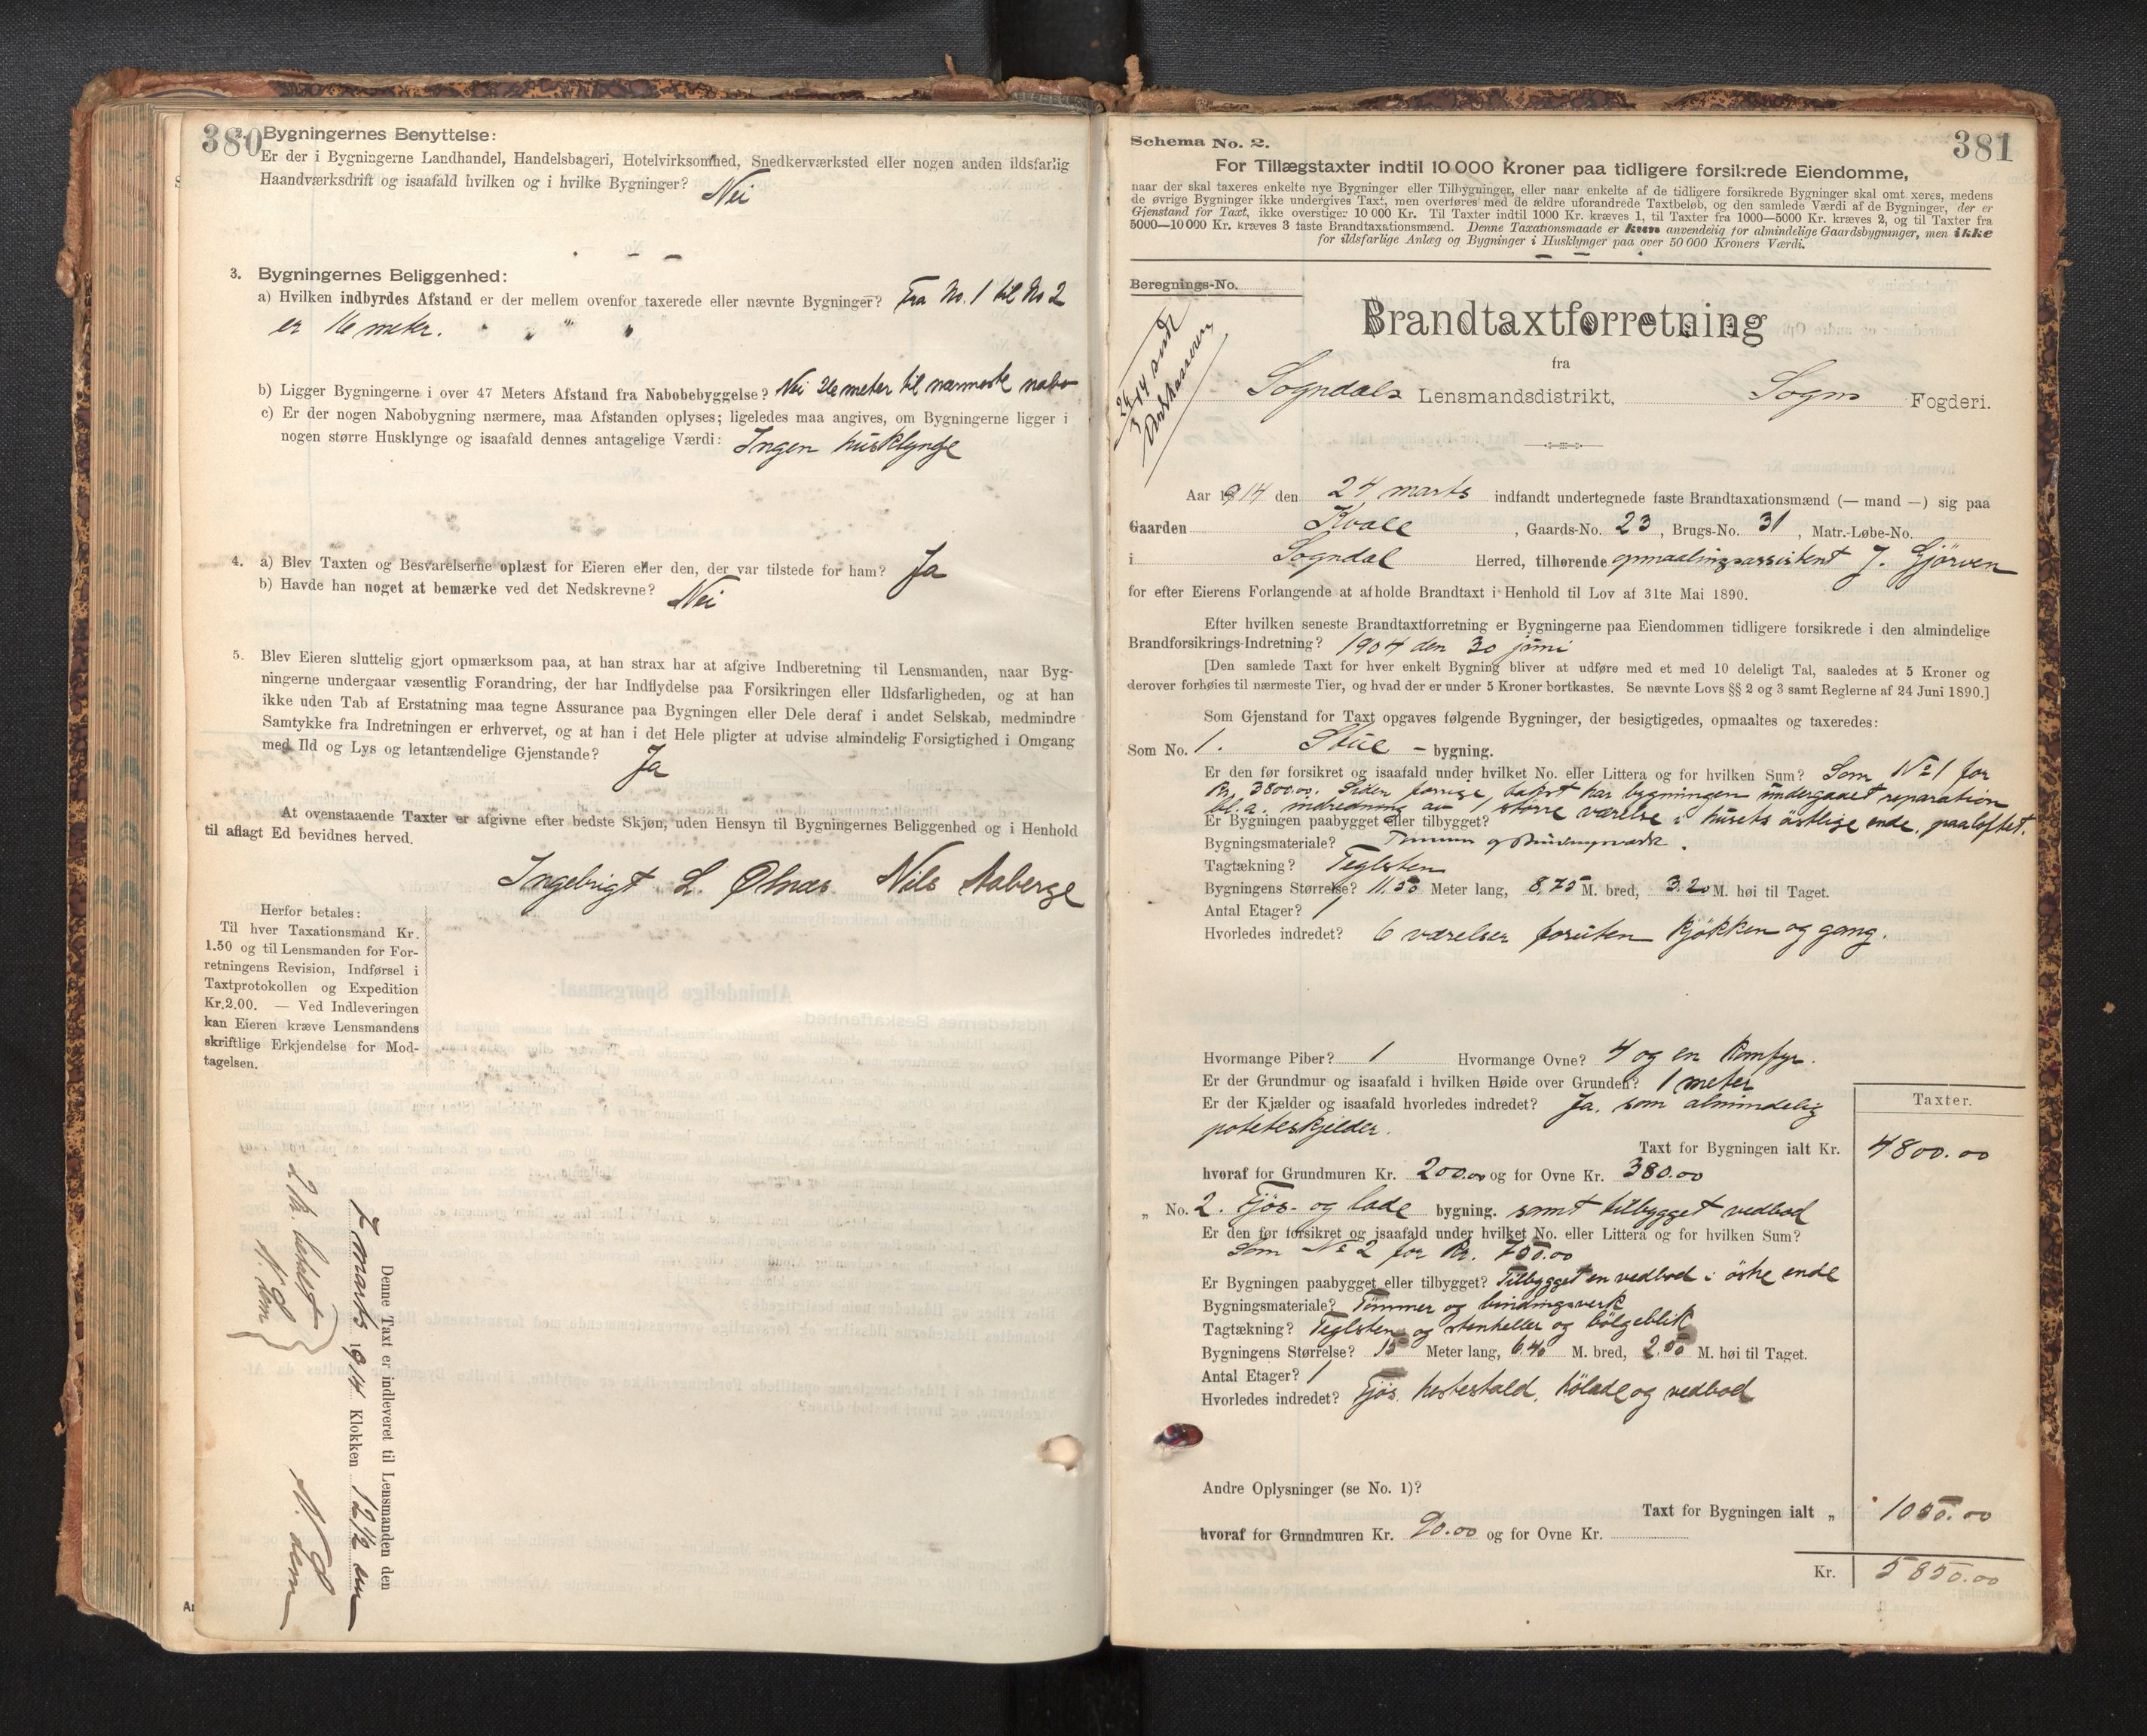 380
2. Bygningernes Benyttelse:
Er der i Bygningerne Landhandel, Handelsbageri, Hotelvirksomhed, Snedkerværksted eller nogen anden ildsfarlig
Haandværksdrift og isaafald hvilken og i hvilke Bygninger? Nei
3. Bygningernes Beliggenhed:
a) Hvilken indbyrdes Afstand er der mellem ovenfor taxerede eller nævnte Bygninger? Fra No. 1 til No 2
er 16 meter.
b) Ligger Bygningerne i over 47 Meters Afstand fra Nabobebyggelse? Nei 26 meter til nærmeste nabo
c) Er der nogen Nabobygning nærmere, maa Afstanden oplyses; ligeledes maa angives, om Bygningerne ligger i
nogen større Husklynge og isaafald dennes antagelige Værdi: Ingen husklynge
4. a) Blev Taxten og Besvarelserne oplæst for Eieren eller den, der var tilstede for ham? Ja
b) Havde han noget at bemærke ved det Nedskrevne? Nei
5. Blev Eieren sluttelig gjort opmærksom paa, at han strax har at afgive Indberetning til Lensmanden, naar Byg-
ningerne undergaar væsentlig Forandring, der har Indflydelse paa Forsikringen eller Ildsfarligheden, og at han
ikke uden Tab af Erstatning maa tegne Assurance paa Bygningen eller Dele deraf i andet Selskab, medmindre
Samtykke fra Indretningen er erhvervet, og at han i det Hele pligter at udvise almindelig Forsigtighed i Omgang
med Ild og Lys og letantændelige Gjenstande? Ja
At ovenstaaende Taxter er afgivne efter bedste Skjøn, uden Hensyn til Bygningernes Beliggenhed og i Henhold
til aflagt Ed bevidnes herved.
Ingebrigt L. Ølnæs Nils Aaberge
Herfor betales:
Til hver Taxationsmand Kr.
1.50 og til Lensmanden for For-
retningens Revision, Indførsel i
Taxtprotokollen og Expedition
Kr.2.00. — Ved Indleveringen
kan Eieren kræve Lensmandens
skriftlige Erkjendelse for Mod-
tagelsen.
Denne Taxt er indleveret til Lensmanden den
marts 1914 Klokken 12½ em
betalt
381
Schema No. 2.
For Tillægstaxter indtil 10 000 Kroner paa tidligere forsikrede Eiendomme,
naar der skal taxeres enkelte nye Bygninger eller Tilbygninger, eller naar enkelte af de tidligere forsikrede Bygninger skal omt xeres, medens
de øvrige Bygninger ikke undergives Taxt, men overføres med de ældre uforandrede Taxtbeløb, og den samlede Værdi af de Bygninger, der er
Gjenstand for Taxt, ikke overstiger 10 000 Kr. Til Taxter indtil 1000 Kr. kræves 1, til Taxter fra 1000—5000 Kr. kræves 2, og til Taxter fra
5000—10 000 Kr. kræves 3 faste Brandtaxationsmænd. Denne Taxationsmaade er kun anvendelig for almindelige Gaardsbygninger, men ikke
for ildsfarlige Anlæg og Bygninger i Husklynger paa over 50 000 Kroners Værdi.
Beregnings-No.
Brandtaxtforretning
fra
Sogndals Lensmandsdistrikt, Sogns Fogderi.
Aar 1914 den 24 marts indfandt undertegnede faste Brandtaxationsmænd (— mand —) sig paa
Gaarden Kvale, Gaards-No. 23, Brugs-No. 31, Matr.-Løbe-No.
i Sogndal Herred, tilhørende opmaalingsassistent J. Gjörven
for efter Eierens Forlangende at afholde Brandtaxt i Henhold til Lov af 31te Mai 1890.
Efter hvilken seneste Brandtaxtforretning er Bygningerne paa Eiendommen tidligere forsikrede i den almindelige
Brandforsikrings-Indretning? 1904 den 30 juni
[Den samlede Taxt for hver enkelt Bygning bliver at udføre med et med 10 deleligt Tal, saaledes at 5 Kroner og
derover forhøies til nærmeste Tier, og hvad der er under 5 Kroner bortkastes. Se nævnte Lovs §§ 2 og 3 samt Reglerne af 24 Juni 1890.]
Som Gjenstand for Taxt opgaves følgende Bygninger, der besigtigedes, opmaaltes og taxeredes:
Som No. 1. Stue - bygning.
Er den før forsikret og isaafald under hvilket No. eller Littera og for hvilken Sum? Som No 1 for
Kr. 3800.00. Siden forrige takst har bygningen undergaaet reparation
bl. a. indredning av 1 större værelse i husets østlige ende, paa loftet.
Er Bygningen paabygget eller tilbygget?
Bygningsmateriale? Tømmer og bindingsverk.
Tagtækning? Teglsten
Bygningens Størrelse? 11.50 Meter lang, 8.75 M. bred, 3.20 M. høi til Taget.
Antal Etager? 1
Hvorledes indredet? 6 værelser foruten kjøkken og gang.
Hvormange Piber? 1 Hvormange Ovne? 4 og en komfyr.
Er der Grundmur og isaafald i hvilken Høide over Grunden? 1 meter
Er der Kjælder og isaafald hvorledes indredet? Ja. som almindelig
poteteskjelder.
Taxter.
Taxt for Bygningen ialt Kr. 4800.00
hvoraf for Grundmuren Kr. 200.00 og for Ovne Kr. 380.00
„ No. 2. Fjös- og lade bygning. samt tilbygget vedbod
Er den før forsikret og isaafald under hvilket No. eller Littera og for hvilken Sum?
Som No 2 for Kr. 750.00
Er Bygningen paabygget eller tilbygget? Tilbygget en vedbod i östre ende
Bygningsmateriale? Tømmer og bindingsverk
Tagtækning? Teglsten og stenheller og bølgeblik
Bygningens Størrelse? 15 Meter lang, 6.40 M. bred, 2.50 M. høi til Taget.
Antal Etager? 1
Hvorledes indredet? Fjös, hestestald, hölade og vedbod
Andre Oplysninger (se No. 1)?
Taxt for Bygningen ialt „ 1050.00
hvoraf for Grundmuren Kr. 90.00 og for Ovne Kr.
Kr. 5850.00